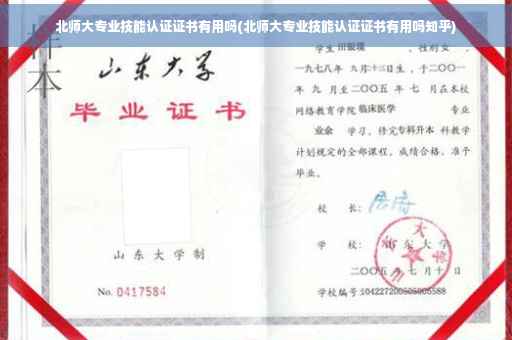 北师大专业技能认证证书有用吗(北师大专业技能认证证书有用吗知乎)
样本
山东大学
毕业证书
山东大学制
No. 0417584
学生 田
，性别女，
一九七八年 九月十三日生，于二〇〇一
年 九 月至二〇〇五 年 七 月在本校
网络教育学院 临床医学 专业
业余 学习，修完专科升本 科教学
计划规定的全部课程，成绩合格，准予
毕业。
校 长：
学 校： 山东大学
二〇〇五 年 七 月 十 日
学校编号：